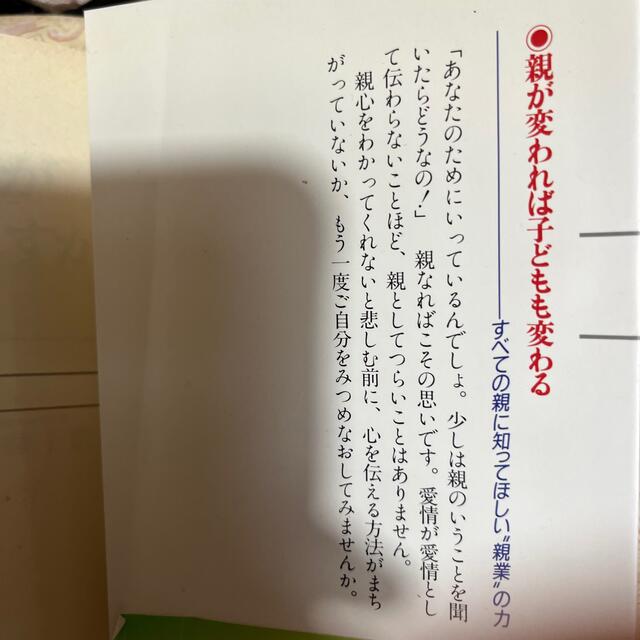 ◉親が変われば子どもも変わる
——すべての親に知ってほしい〝親業〟の力
「あなたのためにいっているんでしょ。少しは親のいうことを聞
いたらどうなの!」　親なればこその思いです。愛情が愛情とし
て伝わらないことほど、親としてつらいことはありません。
　親心をわかってくれないと悲しむ前に、心を伝える方法がまち
がっていないか、もう一度ご自分をみつめなおしてみませんか。